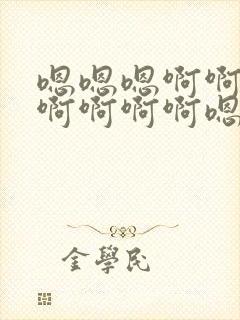 嗯嗯嗯啊啊
啊啊啊啊嗯
金學民